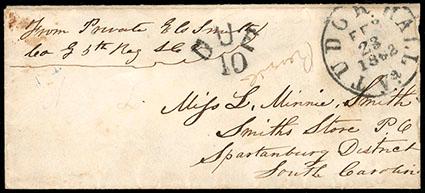 From Private E Co Smith
Co G 5th Reg SC
DUE
10
TUDOR HALL
FEB
23
1862
Va
Miss L. Minnie Smith
Smiths Store P.O
Spartanburg District
South Carolina